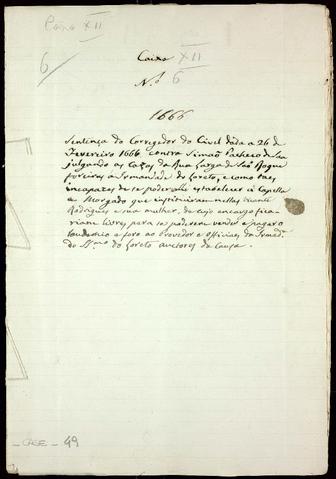 Caixa XII
6
Caixa XII
N.º 6
1666
Sentença do Corregedor do Civel dada a 26 de
Fevereiro 1666 contra Simão Pacheco de Sá
julgando as Cazas da Rua Larga de São Roque
foreiras á Irmandade do Loreto, e como taes
incapazes de se poder nellas estabelecer a Capella
e Morgado que instituiram nellas Vicente
Rodrigues e sua mulher, de cujo encargo fica-
riam livres para se poderem vender e pagar o
laudemio e foro ao Provedor e Officiaes da Irmd.
do SSmo do Loreto auctores da Cauza.
CRSE 49